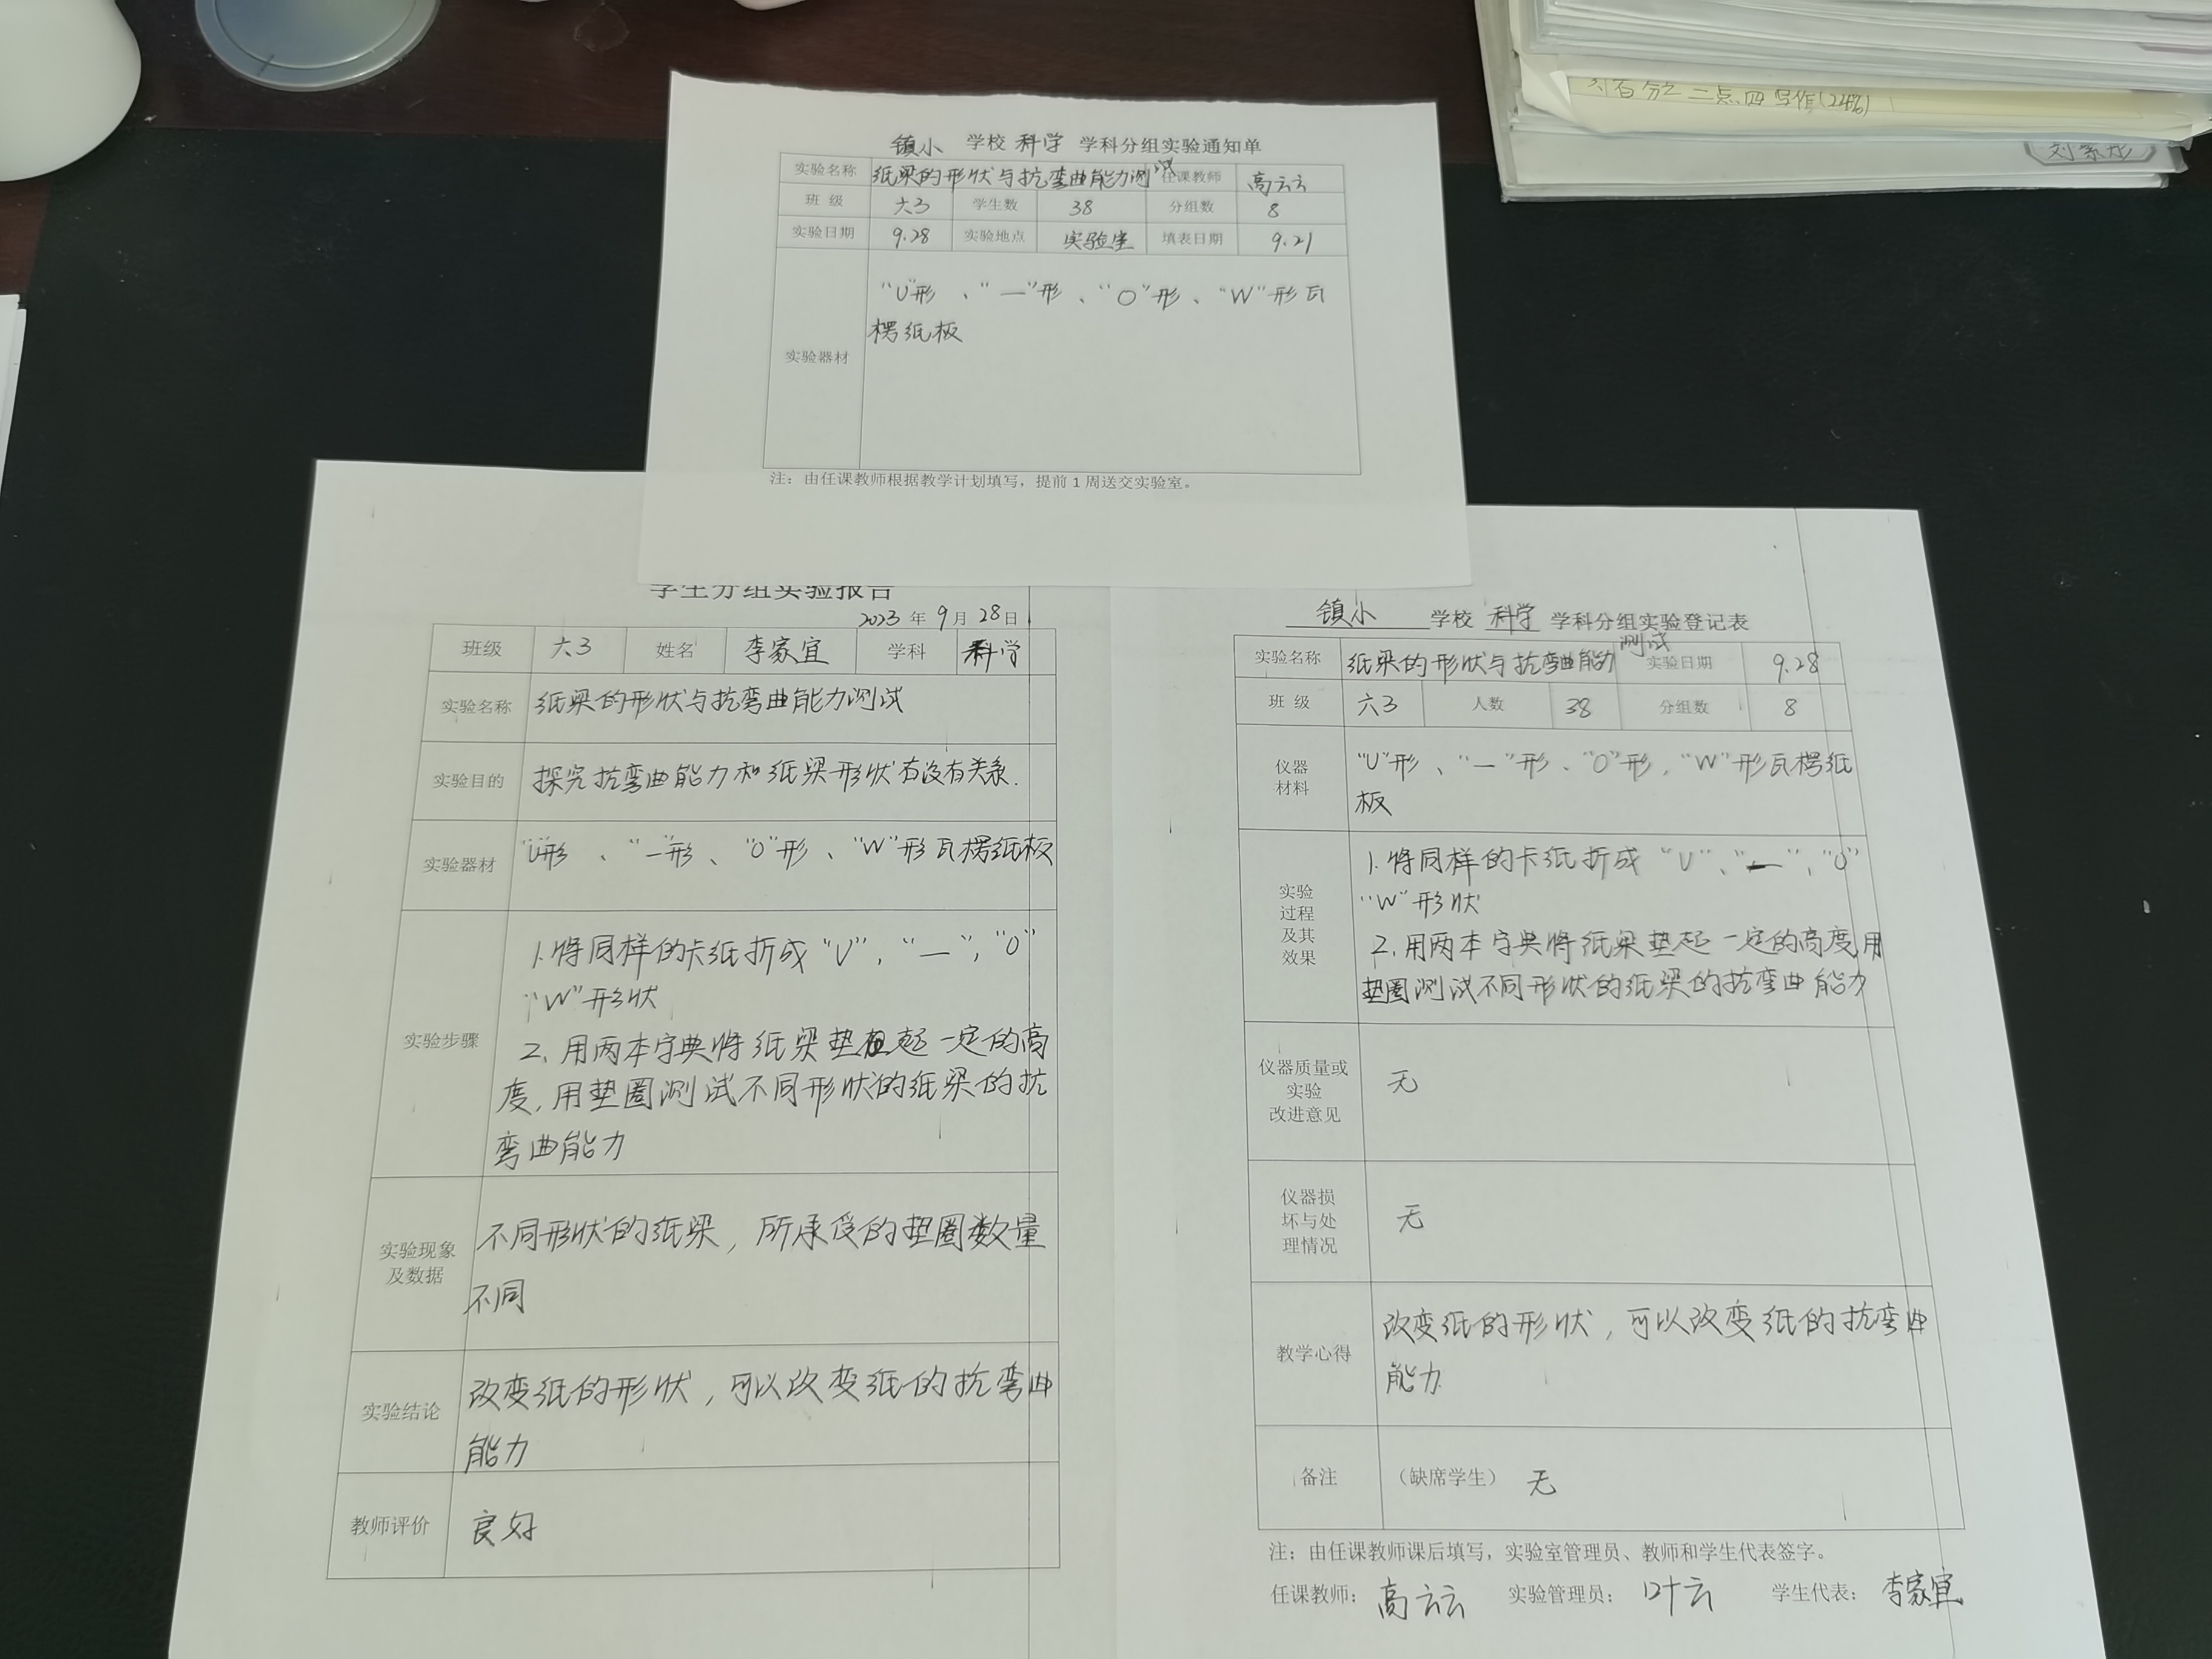 列百分之二点四写作(2.4%)
镇小 学校 科学 学科分组实验通知单
实验名称 纸梁的形状与抗弯曲能力测试 任课教师 高云云
班 级 六3 学生数 38 分组数 8
实验日期 9.28 实验地点 实验室 填表日期 9.21
实验器材 “U”形、“一”形、“O”形、“W”形瓦
楞纸板
注：由任课教师根据教学计划填写，提前1周送交实验室。
学生分组实验报告
2023年9月28日
班级 六3 姓名 李家宜 学科 科学
实验名称 纸梁的形状与抗弯曲能力测试
实验目的 探究抗弯曲能力和纸梁形状有没有关系.
实验器材 “U”形、“一”形、“O”形、“W”形瓦楞纸板
实验步骤 1.将同样的卡纸折成“U”，“一”，“O”
“W”形状
2、用两本字典将纸梁垫起一定的高
度，用垫圈测试不同形状的纸梁的抗
弯曲能力
实验现象
及数据
不同形状的纸梁，所承受的垫圈数量
不同
实验结论 改变纸的形状，可以改变纸的抗弯曲
能力
教师评价 良好
镇小 学校 科学 学科分组实验登记表
实验名称 纸梁的形状与抗弯曲能力测试 实验日期 9.28
班 级 六3 人数 38 分组数 8
仪器
材料
“U”形、“一”形、“O”形，“W”形瓦楞纸
板
实验
过程
及其
效果
1.将同样的卡纸折成“U”、“一”，“O”
“W”形状
2.用两本字典将纸梁垫起一定的高度，用
垫圈测试不同形状的纸梁的抗弯曲能力
仪器质量或
实验
改进意见
无
仪器损
坏与处
理情况
无
教学心得 改变纸的形状，可以改变纸的抗弯曲
能力
备注 （缺席学生） 无
注：由任课教师课后填写，实验室管理员、教师和学生代表签字。
任课教师： 高云云 实验管理员： 叶云 学生代表： 李家宜